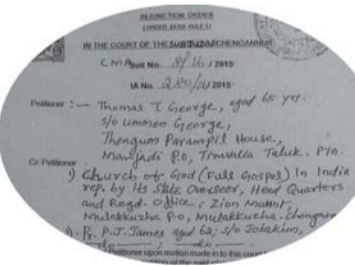 INJUNCTION ORDER
(ORDER XXXIX RULE 1)
IN THE COURT OF THE SUB JUDGE CHENGANNUR
CMA Suit No 8/16 / 2015
IA No. 280/16 2015
Petitioner :— Thomas T George, aged 65 yrs.
s/o Ummen George,
Thengum Parampil House,
Manjadi P.O, Tiruvalla Taluk. PTA.
Cr. Petitioner
1) Church of God (Full Gospel) In India
rep. by Its State Overseer, Head Quarters
and Regd. Office ; Zion Mount,
Mulakkuzha P.O, Mulakkuzha. Chengan
P.J. James aged 62; S/o Joiakim,
do — ; do —
Petitioner upon motion made in to this court